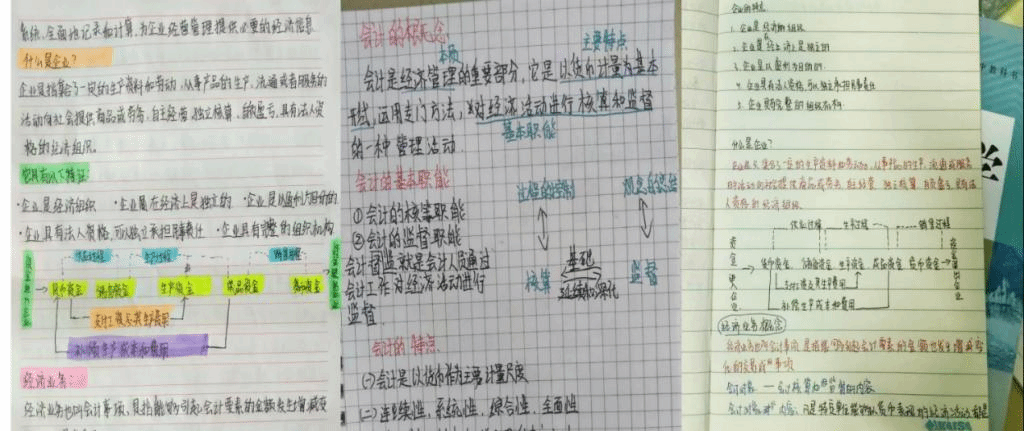 系统、全面地记录和计算,为企业经营管理提供必要的经济信息
什么是企业?
企业是指集合了一定的生产资料和劳动,从事产品的生产、流通或者服务的
活动向社会提供商品或劳务,自主经营,独立核算,自负盈亏,具有法人资
格的经济组织.
它具有以下特征:
·企业是经济组织 ·企业在经济上是独立的 ·企业是以盈利为目的的
·企业具有法人资格,可以独立承担民事责任 ·企业具有完整的组织机构
供应过程 生产过程 销售过程
货币资金 储备资金 生产资金 成品资金 货币资金
支付工资及其生产费用
补偿生产成本和费用
经济业务:
经济业务也叫会计事项,是指能够引起会计要素的金额发生增减变
会计的概念:
本质 主要特点
会计是经济管理的重要部分,它是以货币计量为基本
形式,运用专门方法,对经济活动进行核算和监督
基本职能
的一种管理活动.
会计的基本职能
过程的控制 观念的总结
①会计的核算职能
②会计的监督职能
会计监督就是会计人员通过
会计工作对经济活动进行
监督.
基础
核算 监督
延续和深化
会计的特点
(一)会计是以货币作为主要计量尺度
(二)连续性,系统性,综合性,全面性
企业的特点
1. 企业是经济的组织
2. 企业在经济上是独立的
3. 企业是以盈利为目的的.
4. 企业具有法人资格,可以独立承担民事责任
5. 企业具有完整的组织机构
什么是企业?
供应过程 生产过程 销售过程
货币资金 储备资金 生产资金 成品资金 货币资金
支付工资及其生产费用
补偿生产成本和费用
经济业务概念
会计对象 — 会计核算和监督的内容